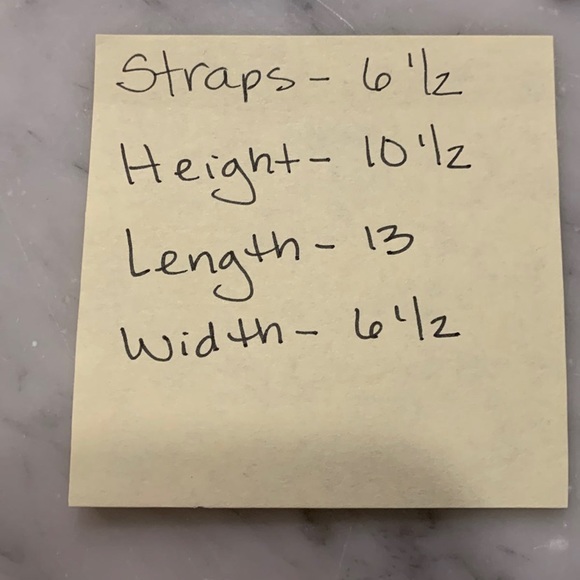 Straps - 6 1/2
Height - 10 1/2
Length - 13
Width - 6 1/2